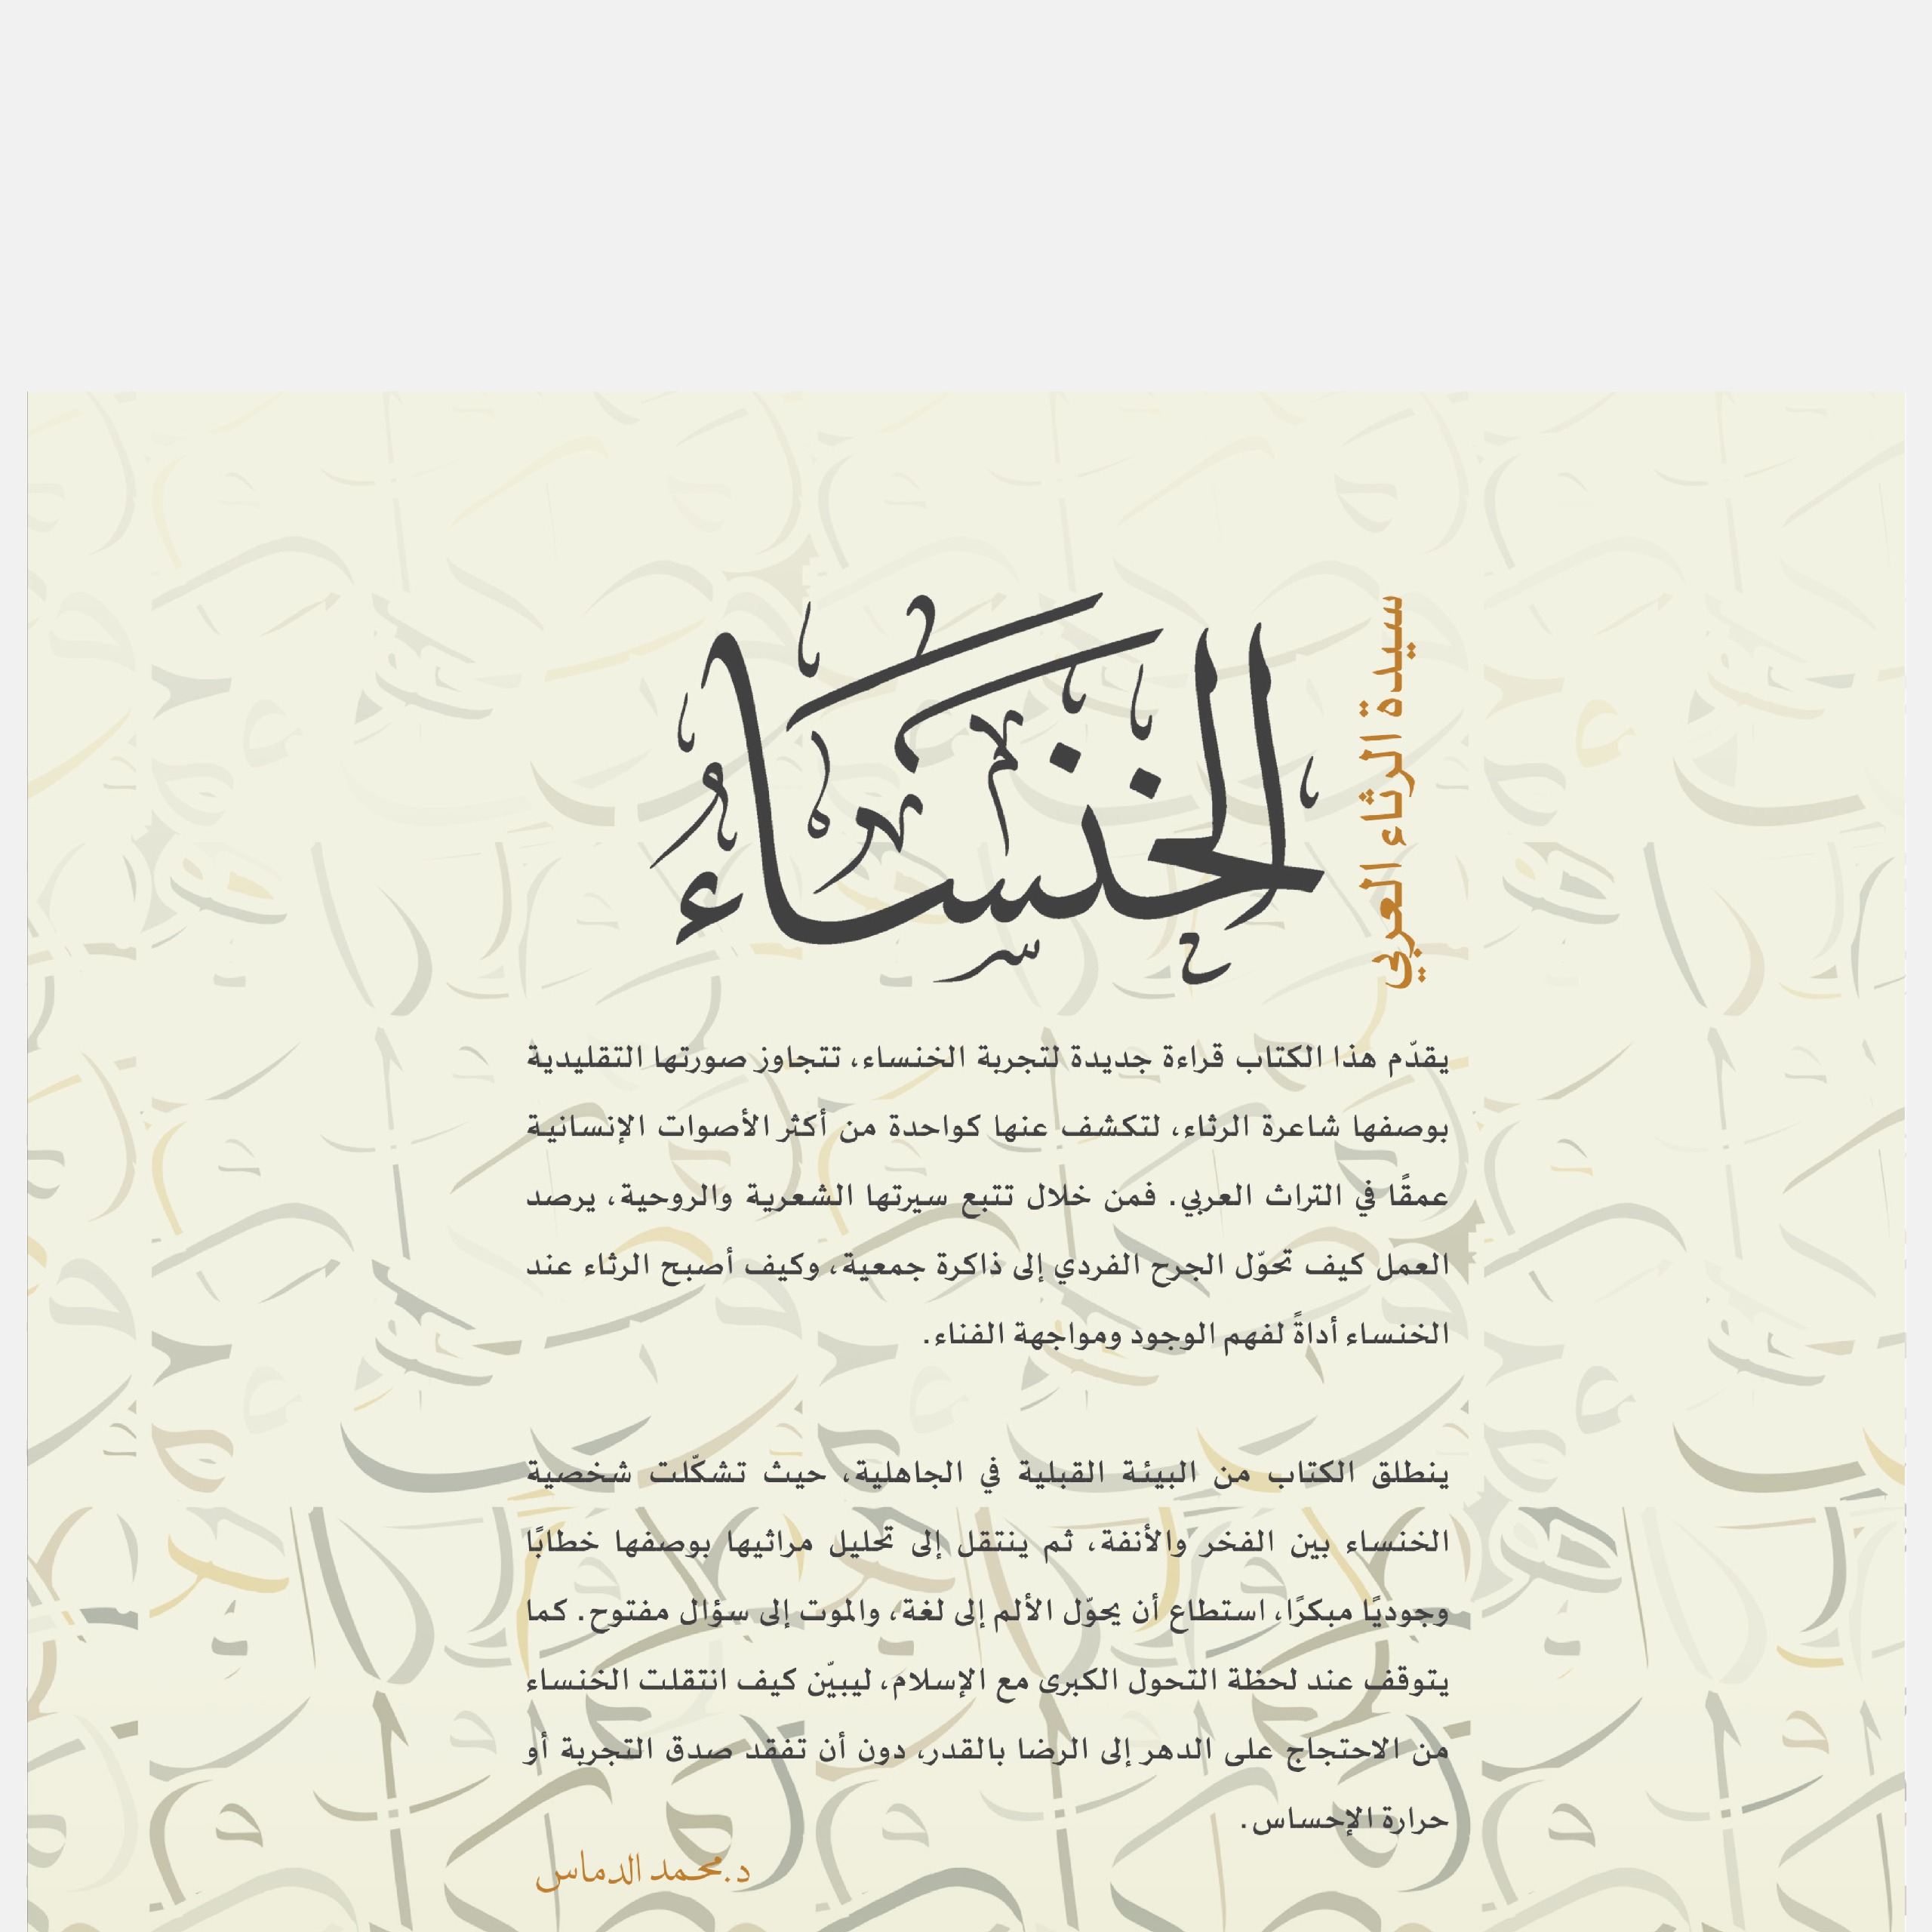 الخنساءُ
سيدة الرثاء العربي
يقدّم هذا الكتاب قراءة جديدة لتجربة الخنساء، تتجاوز صورتها التقليدية
بوصفها شاعرة الرثاء، لتكشف عنها كواحدة من أكثر الأصوات الإنسانية
عمقًا في التراث العربي. فمن خلال تتبع سيرتها الشعرية والروحية، يرصد
العمل كيف تحوّل الجرح الفردي إلى ذاكرة جمعية، وكيف أصبح الرثاء عند
الخنساء أداةً لفهم الوجود ومواجهة الفناء.
ينطلق الكتاب من البيئة القبلية في الجاهلية، حيث تشكّلت شخصية
الخنساء بين الفخر والأنفة، ثم ينتقل إلى تحليل مراثيها بوصفها خطابًا
وجوديًا مبكرًا، استطاع أن يحوّل الألم إلى لغة، والموت إلى سؤال مفتوح. كما
يتوقف عند لحظة التحول الكبرى مع الإسلام، ليبيّن كيف انتقلت الخنساء
من الاحتجاج على الدهر إلى الرضا بالقدر، دون أن تفقد صدق التجربة أو
حرارة الإحساس.
د.محمد الدماس